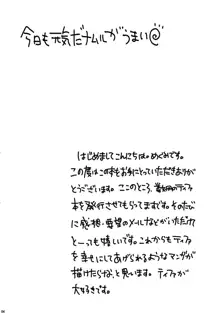 今日も元気だナムルがうまい@
はじめましてこんにちは。めぐみです。
この度はこの本をお手にとっていただきありが
とうございます。ここのところ、
本を発行させてもらってます。そのたび
に感想・要望のメールなどがいただけ
と一っても嬉しいです。これからもティファ
を幸せにしてあげられるようなマンガが
描けたらなと思います。ティファが
大好きです。